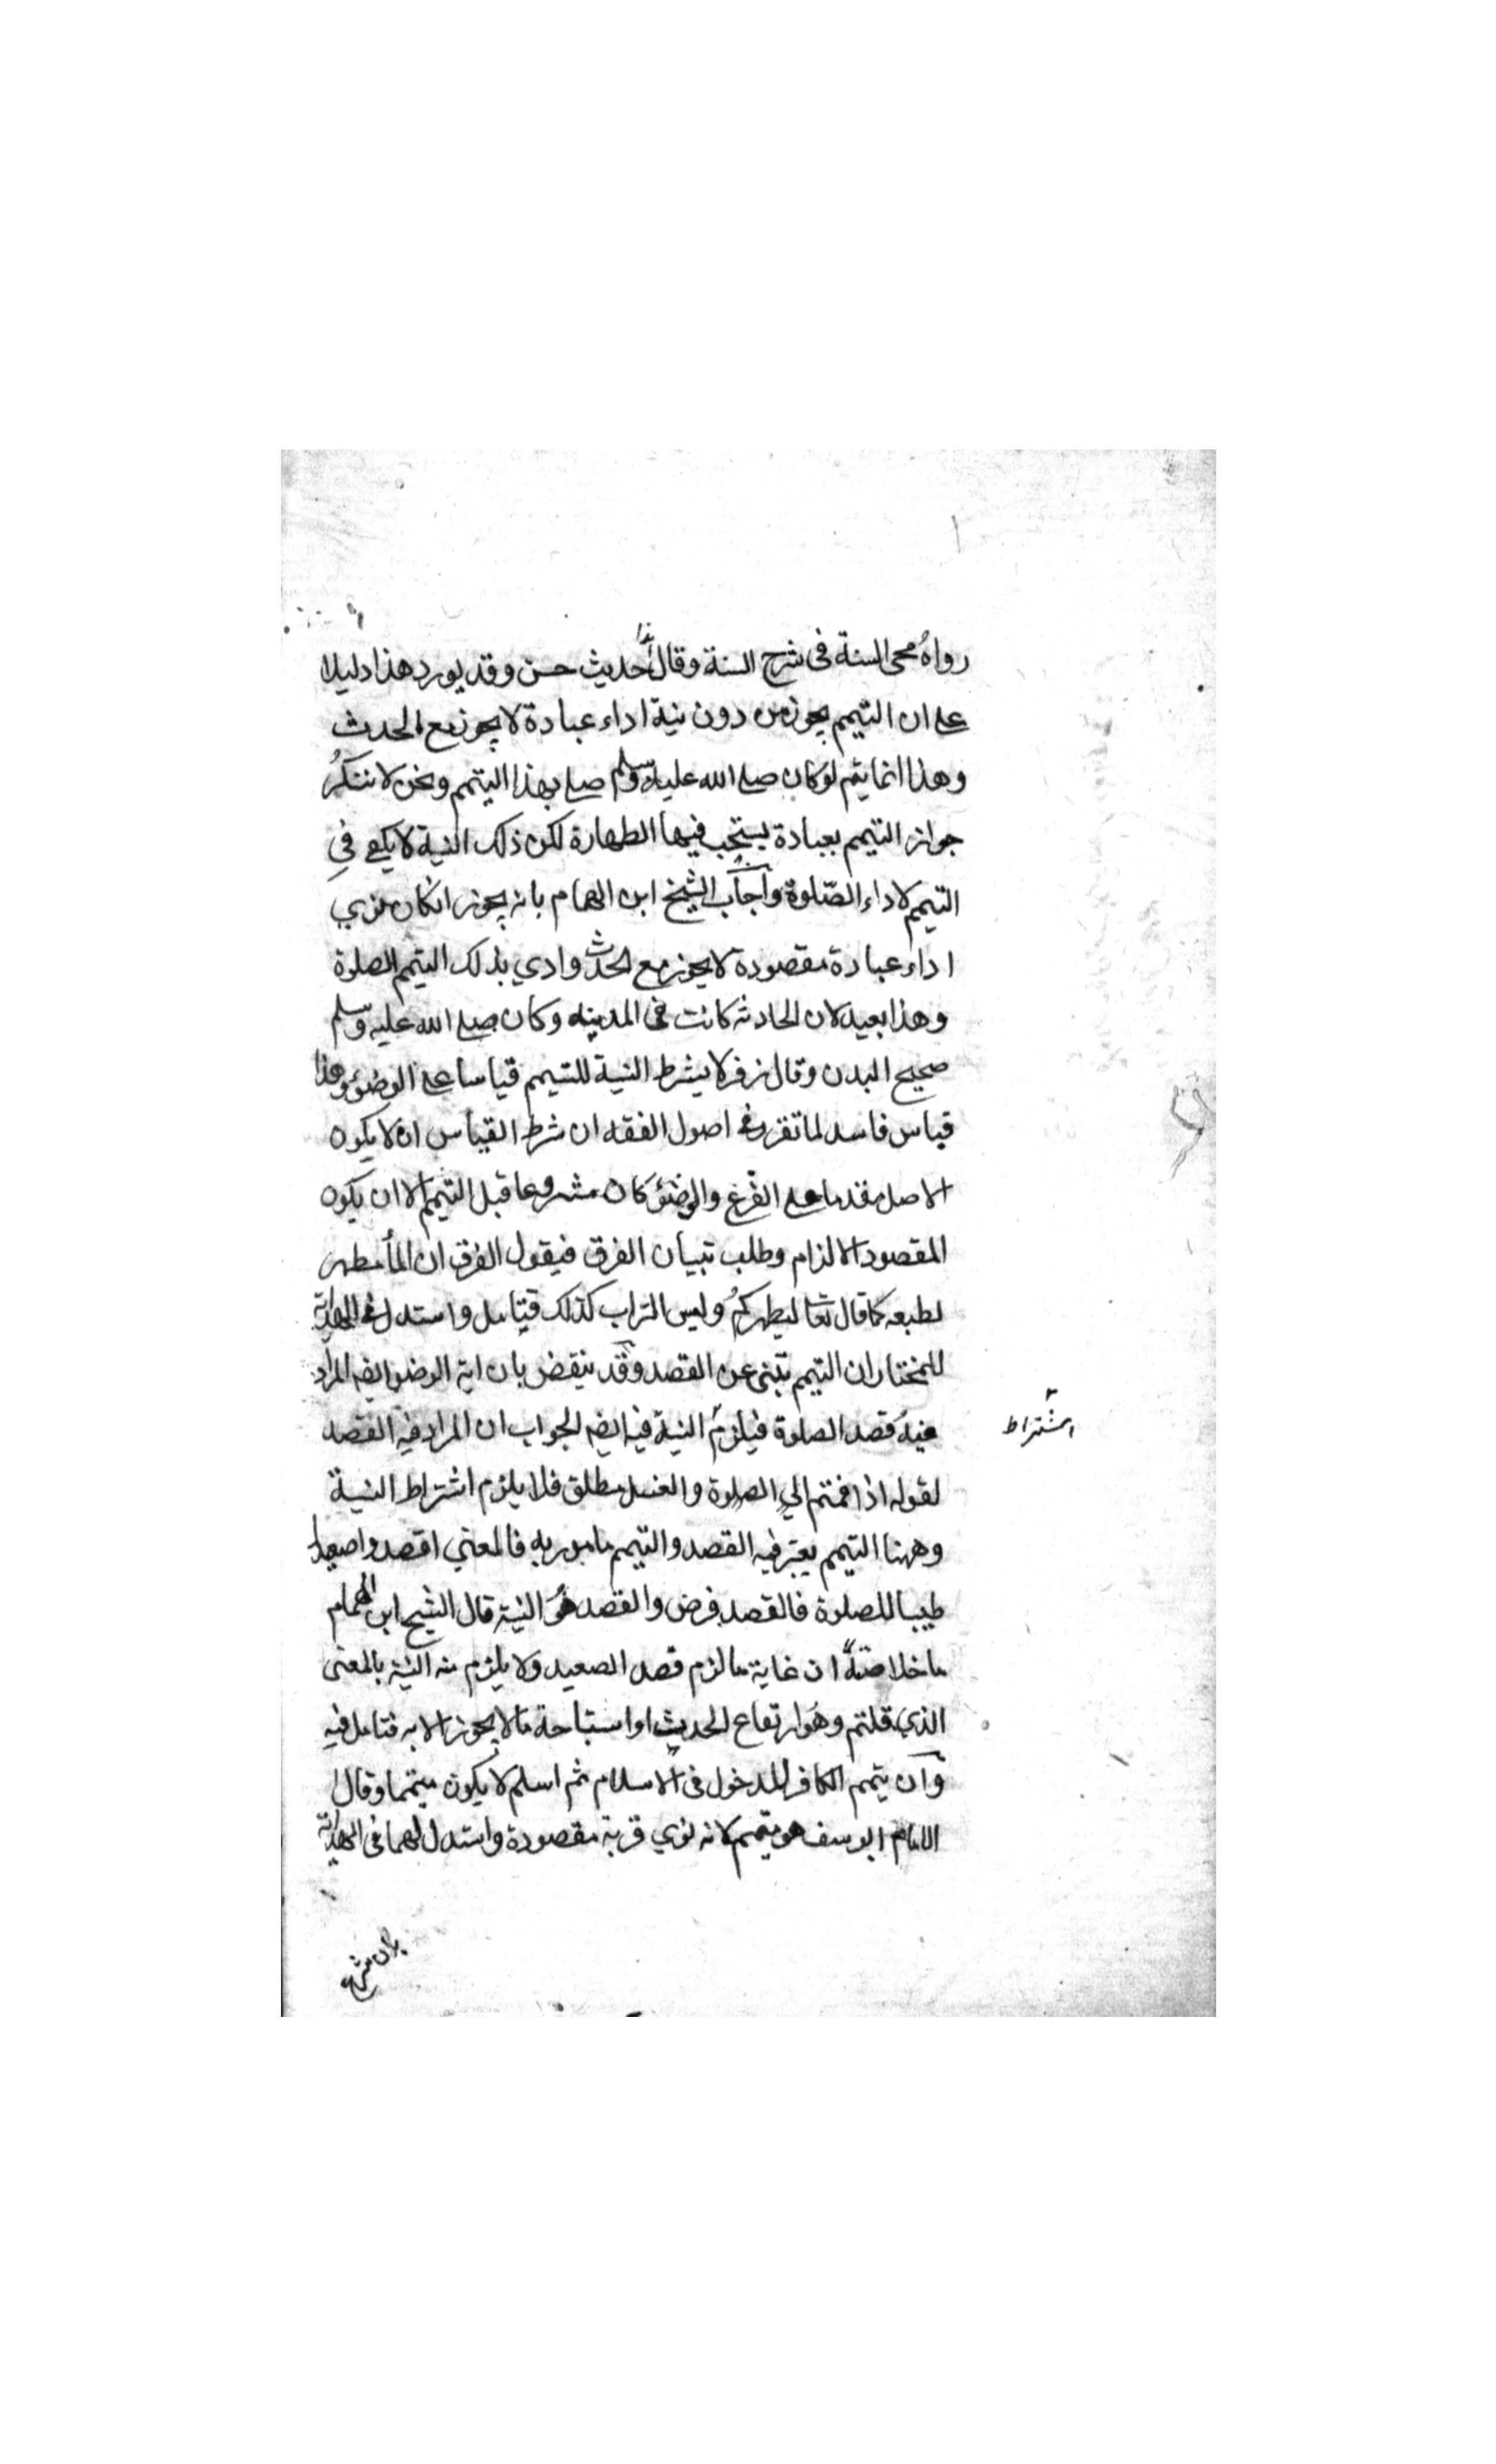 رواه محى السنة فى شرح السنة وقال هذا حديث حسن وقد يورد هذا دليلا
على ان التيمم يجوز من دون نية اداء عبادة لا يجوز مع الحدث
وهذا انما يتم لو كان صلى الله عليه وسلم صلى بهذا التيمم ونحن لا ننكر
جواز التيمم بعبادة يستحب فيها الطهارة لكن ذلك النية لا يكفى فى
التيمم لاداء الصلوة واجاب الشيخ ابن الهمام بانه يجوز انكان نوي
اداء عبادة مقصودة لا يجوز مع الحدث وادي بذلك التيمم الصلوة
وهذا بعيد لان الحادثه كانت فى المدينه وكان صلى الله عليه وسلم
صحيح البدن وقال زفر لا يشرط النية للتيمم قياسا على الوضوء وهذا
قياس فاسد لما تقرر فى اصول الفقه ان شرط القياس ان لا يكون
الاصل مقدما على الفرع والوضوء كان مشروعا قبل التيمم الا ان يكون
المقصود الالزام وطلب تبيان الفرق فيقول الفرق ان الماء مطهر
لطبعه كما قال تعا ليطهركم وليس التراب كذلك فيتامل واستدل فى الهداية
للمختار ان التيمم تنبئ عن القصد وقد ينقض بان اية الوضوء ايضا المراد
فيه قصد الصلوة فيلزم النية فيه ايضا الجواب ان المراد فيه القصد
اشتراط
لقوله اذا قمتم الي الصلوة والغسل مطلق فلا يلزم اشتراط النية
وههنا التيمم يعتبر فيه القصد والتيمم مامور به فالمعني اقصدوا صعيدا
طيبا للصلوة فالقصد فرض والقصد هو النية قال الشيخ ابن الهمام
ما خلاصته ان غاية ما لزم قصد الصعيد ولا يلزم منه النية بالمعنى
الذي قلتم وهو ارتفاع الحدث او استباحة ما لا يجوز الا به فتامل فيه
وان يتمم الكافر للدخول فى الاسلام ثم اسلم لا يكون متيمما وقال
الامام ابو يوسف هو متيمم لانه نوي قربة مقصودة واستدل لهما فى الهداية